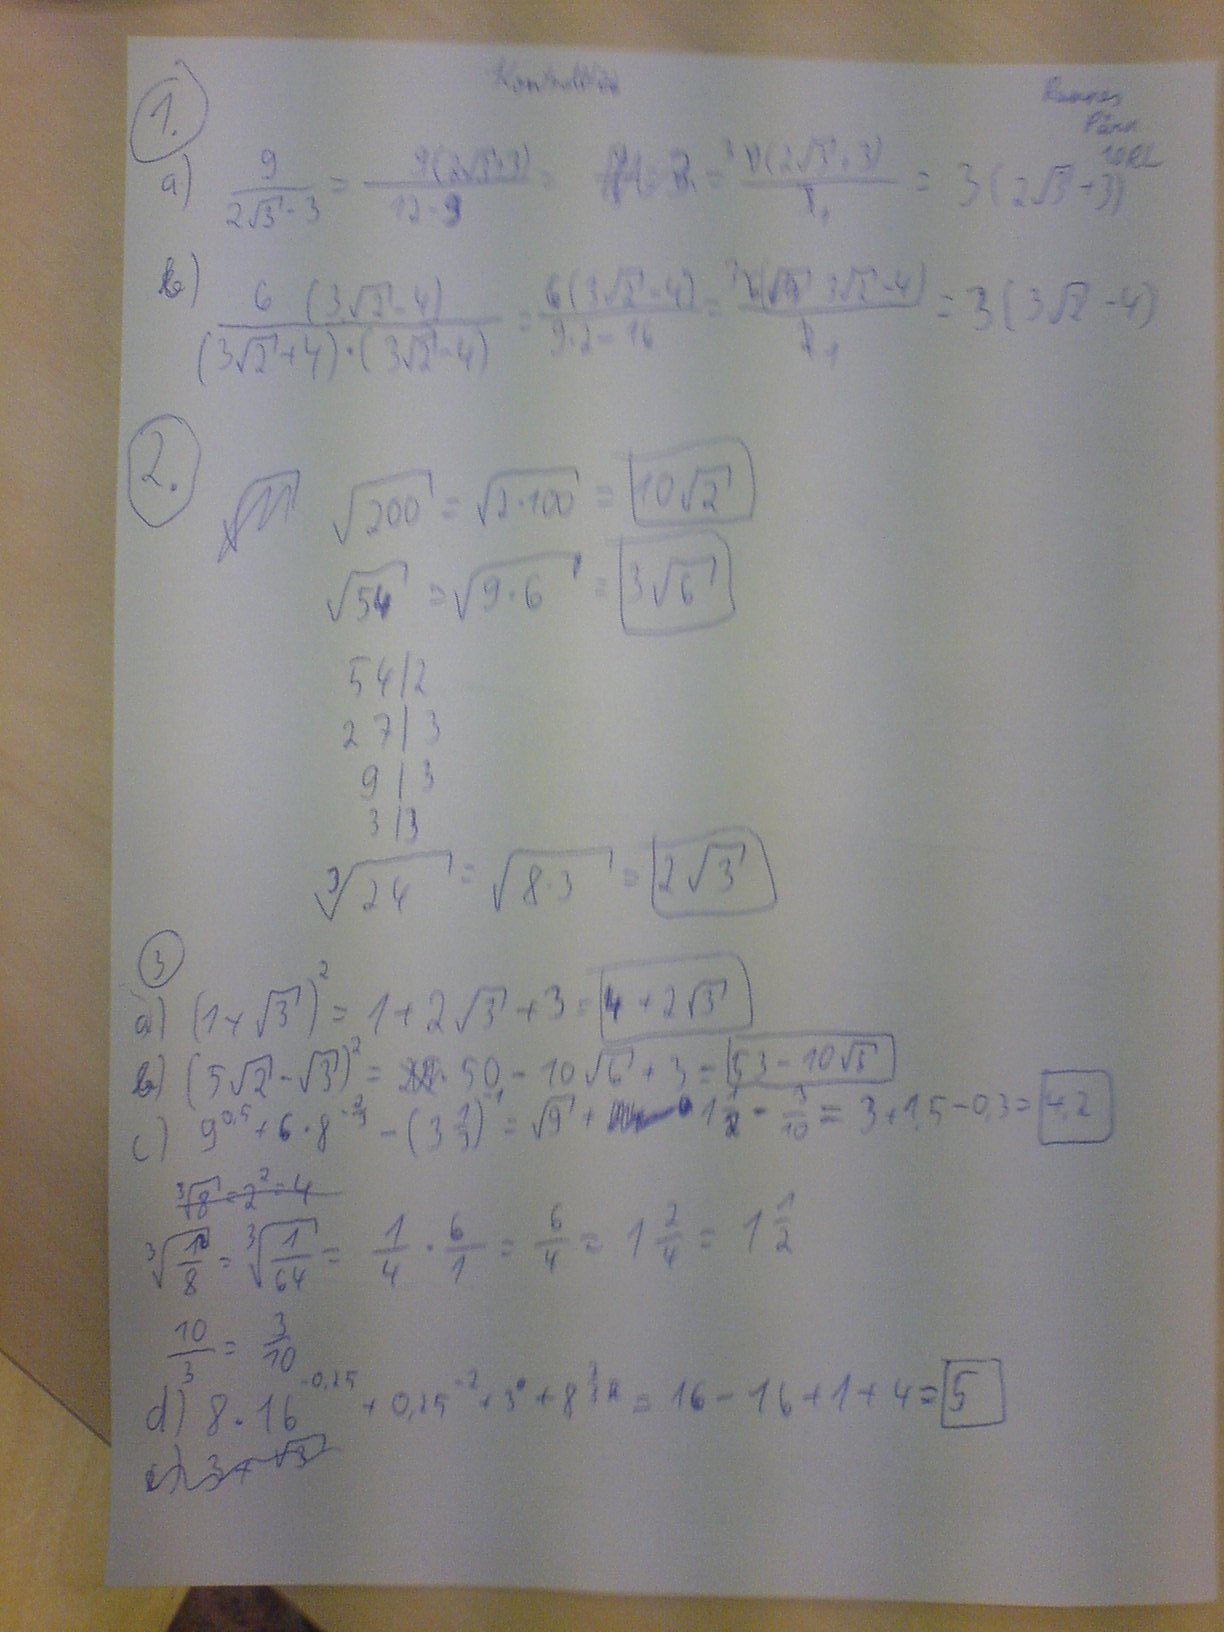 Kontrolltöö
Pärn
10RL
1.
a) 9/(2√3 - 3) = 9(2√3+3)/(12-9) = 3 (2√3+3)/1 = 3(2√3+3)
b) 6 (3√2-4)/((3√2+4)·(3√2-4)) = 6(3√2-4)/(9·2-16) = 3 3√2-4)/1 = 3(3√2-4)
2.
√200 = √2·100 = 10√2
√54 = √9·6 = 3√6
54|2
27|3
9|3
3|3
³√24 = √8·3 = 2√3
3
a) (1+√3)² = 1+2√3+3 = 4+2√3
b) (5√2-√3)² = 50 - 10√6 + 3 = 53-10√
c) 9^0,5 + 6·8^-2/3 - (3 1/3)^-1 = √9 + 1 1/2 - 3/10 = 3+1,5-0,3 = 4,2
³√8 = 2² = 4
³√1/8 = ³√1/64 = 1/4 · 6/1 = 6/4 = 1 2/4 = 1 1/2
10/3 = 3/10
d) 8·16^-0,25 + 0,25^-2 + 3^0 + 8 = 16-16+1+4 = 5
3+√3